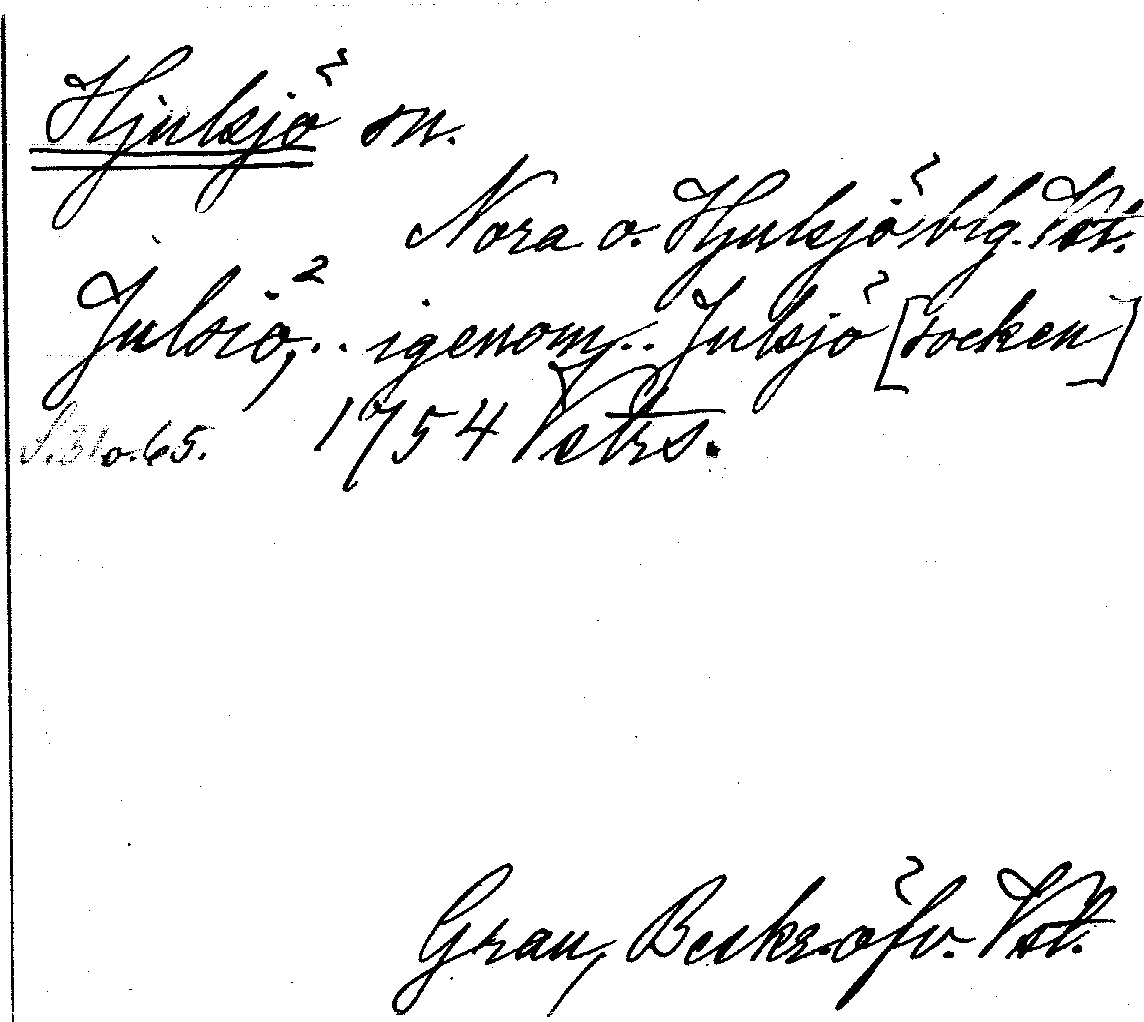 Hjulsjö sn.
Nora o. Hjulsjö blg. Vst.
Julsiö,.. igenom.. Julsjö [socken]
S. 31 o. 65. 1754 Vetrs.
Grau, Beskr. öfv. Vst.